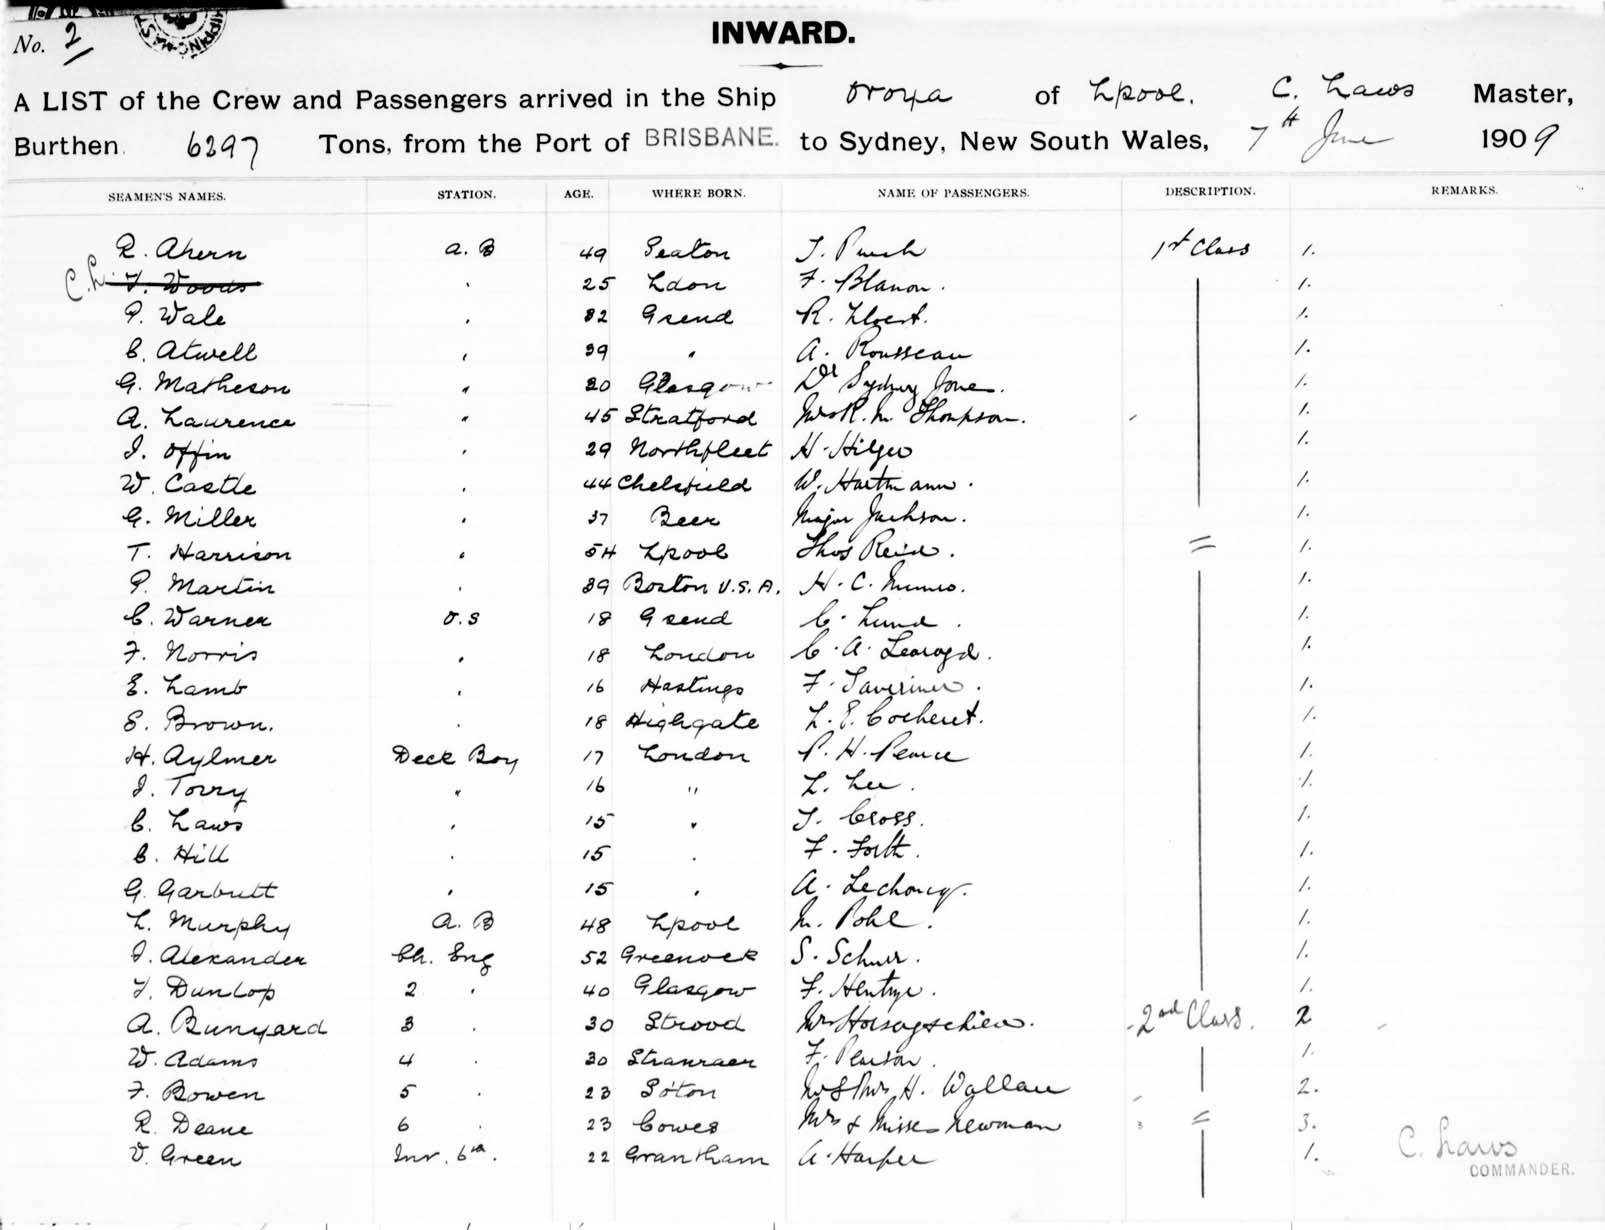 No. 2
INWARD.
A LIST of the Crew and Passengers arrived in the Ship Oroya of Lpool. C. Laws Master,
Burthen 6297 Tons, from the Port of BRISBANE. to Sydney, New South Wales, 7th June 1909
SEAMEN'S NAMES. STATION. AGE. WHERE BORN. NAME OF PASSENGERS. DESCRIPTION. REMARKS.
R. Ahern A.B 49 Seaton 1st Class 1.
C.L. F. Woods 25 Ldon F. Blanon. 1.
P. Wale 32 Gsend R. 1.
C. Atwell 39 " A. Rousseau 1.
G. Matheson " 20 Glasgow Dr Sydney Jones. 1.
A. Laurence " 45 Stratford Mrs R. M. Thompson. 1.
J. Offin 29 Northfleet H. Hilger 1.
W. Castle 44 Chelsfield W. Hartmann. 1.
G. Miller 37 Beer Major Jackson. 1.
T. Harrison 54 Lpool Thos Reid. = 1.
P. Martin 39 Boston U.S.A. H. C. Munro. 1.
C. Warner O.S 18 Gsend C. Lund. 1.
F. Norris 18 London C. A. Learoyd. 1.
E. Lamb 16 Hastings F. 1.
E. Brown. 18 Highgate L. E. Cocheret. 1.
H. Aylmer Deck Boy 17 London P. H. Pearce 1.
J. Torry " 16 " L. Lee. 1.
C. Laws 15 " J. Cross. 1.
C. Hill 15 F. Forth. 1.
G. Garbutt 15 A. 1.
L. Murphy A.B 48 Lpool M. Pohl. 1.
J. Alexander Ch. Eng 52 Greenock S. 1.
F. Dunlop 2 40 Glasgow F. 1.
A. Bunyard 3 30 Strood 2nd Class. 2
W. Adams 4 30 Stranraer F. Pearson. 1.
F. Bowen 5 23 So'ton Mr & Mrs H. Wallace 2.
R. Deane 6 23 Cowes Mrs & Misses Newman = 3.
V. Green Jnr. 6th. 22 Grantham A. Harper 1.
C. Laws
COMMANDER.